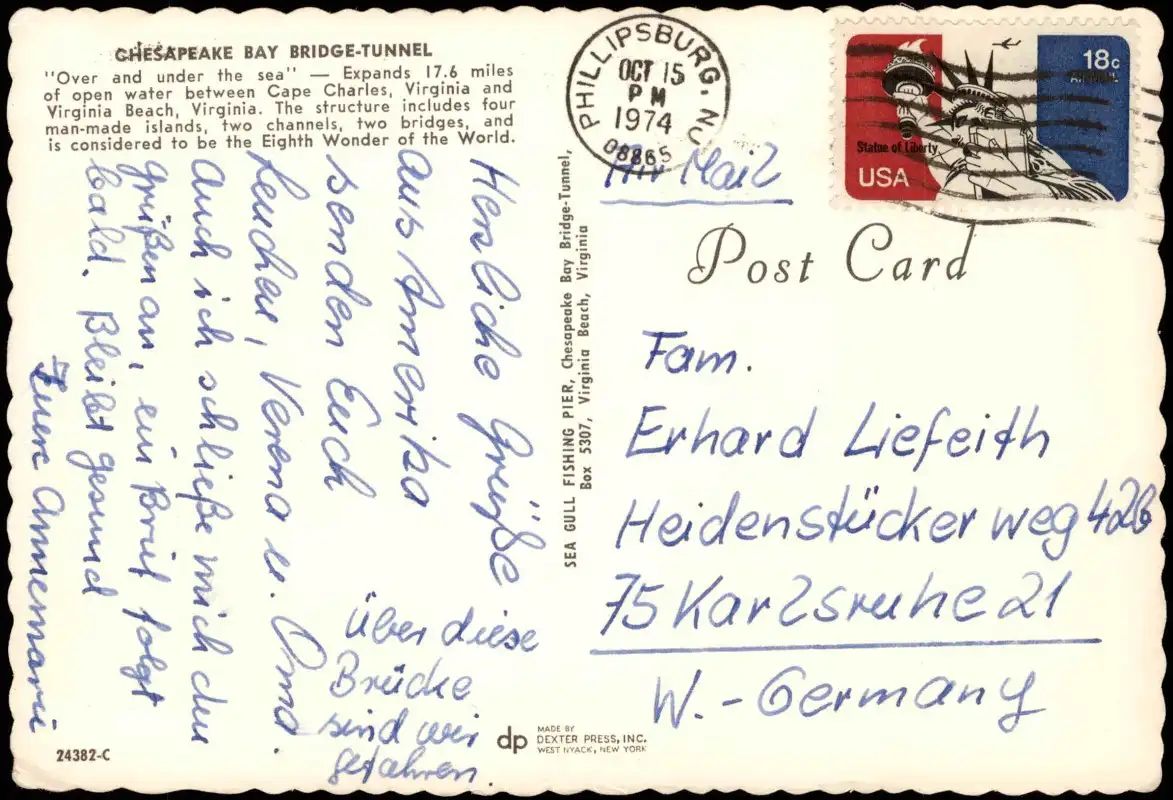 CHESAPEAKE BAY BRIDGE-TUNNEL
"Over and under the sea" — Expands 17.6 miles
of open water between Cape Charles, Virginia and
Virginia Beach, Virginia. The structure includes four
man-made islands, two channels, two bridges, and
is considered to be the Eighth Wonder of the World.
Herzliche Grüße
aus Amerika
senden Euch
Lenchen, Verena u. Oma.
Auch ich schließe mich den
Grüßen an, ein Brief folgt
bald. Bleibt gesund
Euere Annemarie
Über diese
Brücke
sind wir
gefahren.
24382-C
SEA GULL FISHING PIER, Chesapeake Bay Bridge-Tunnel,
Box 5307, Virginia Beach, Virginia
dp
MADE BY
DEXTER PRESS, INC.
WEST NYACK, NEW YORK
PHILLIPSBURG, NJ
OCT 15
PM
1974
08865
18c
AIRMAIL
Statue of Liberty
USA
Air Mail
Post Card
Fam.
Erhard Liefeith
Heidenstücker weg 42b
75 Karlsruhe 21
W.-Germany